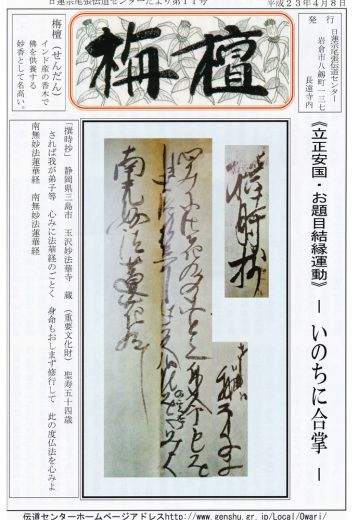 日蓮宗尾張伝道センターだより第11号
平成23年4月8日
発行
日蓮宗尾張伝道センター
岩倉市八剱町一三七
長遠寺内
栴檀
栴檀(せんだん)
インド産の香木で
佛を供養する
妙香として名高い。
《立正安国・お題目結縁運動》 ― いのちに合掌 ―
撰時抄
南無妙法蓮華経
「撰時抄」 静岡県三島市 玉沢妙法華寺 蔵 (重要文化財) 聖寿五十四歳
されば我が弟子等 心みに法華経のごとく 身命もおしまず修行して 此の度仏法を心みよ
南無妙法蓮華経 南無妙法蓮華経
伝道センターホームページアドレスhttp://www.genshu.gr.jp/Local/Owari/